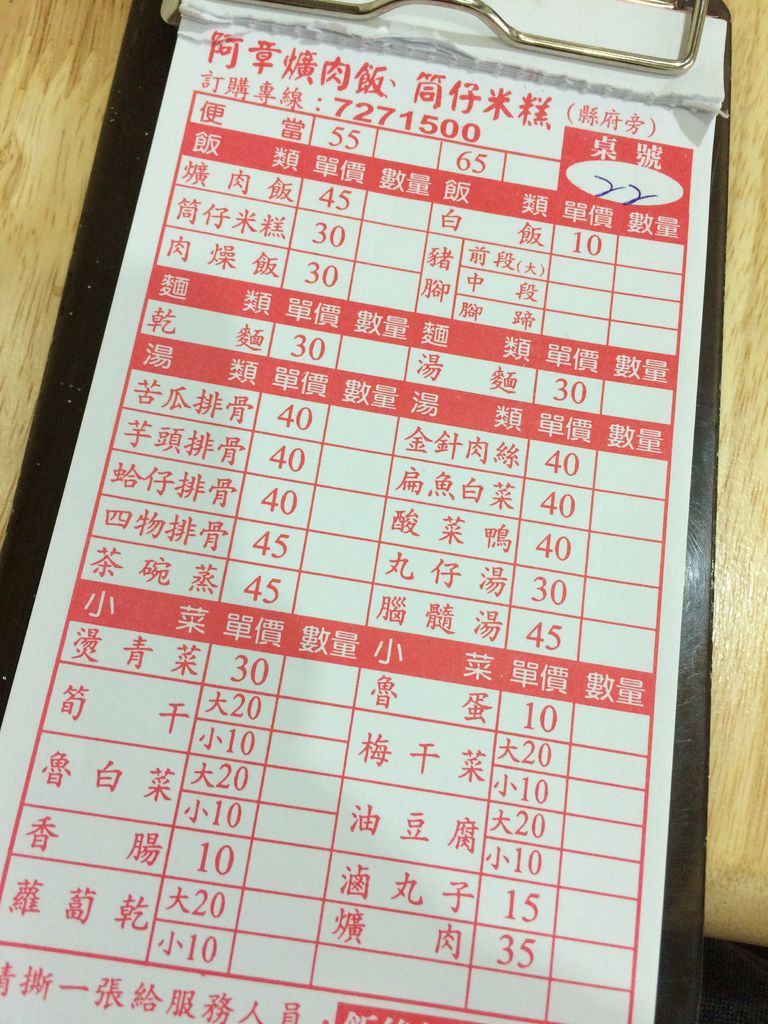 阿章爌肉飯、筒仔米糕(縣府旁)
訂購專線：7271500
便當 55 65 桌號 22
飯類 單價 數量 飯類 單價 數量
爌肉飯 45 白飯 10
筒仔米糕 30 豬腳 前段(大)
肉燥飯 30 中段
腳蹄
麵類 單價 數量 麵類 單價 數量
乾麵 30 湯麵 30
湯類 單價 數量 湯類 單價 數量
苦瓜排骨 40 金針肉絲 40
芋頭排骨 40 扁魚白菜 40
蛤仔排骨 40 酸菜鴨 40
四物排骨 45 丸仔湯 30
茶碗蒸 45 腦髓湯 45
小菜 單價 數量 小菜 單價 數量
燙青菜 30 魯蛋 10
筍干 大20 梅干菜 大20
小10 小10
魯白菜 大20 油豆腐 大20
小10 小10
香腸 10 滷丸子 15
蘿蔔乾 大20 爌肉 35
小10
請撕一張給服務人員，